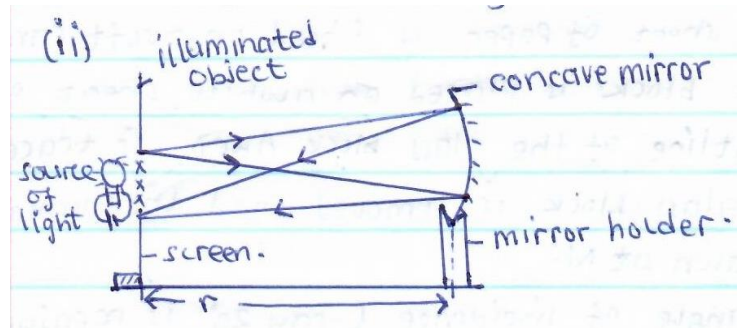 (ii)
illuminated
object
concave mirror
source
of
light
screen.
mirror holder.
r